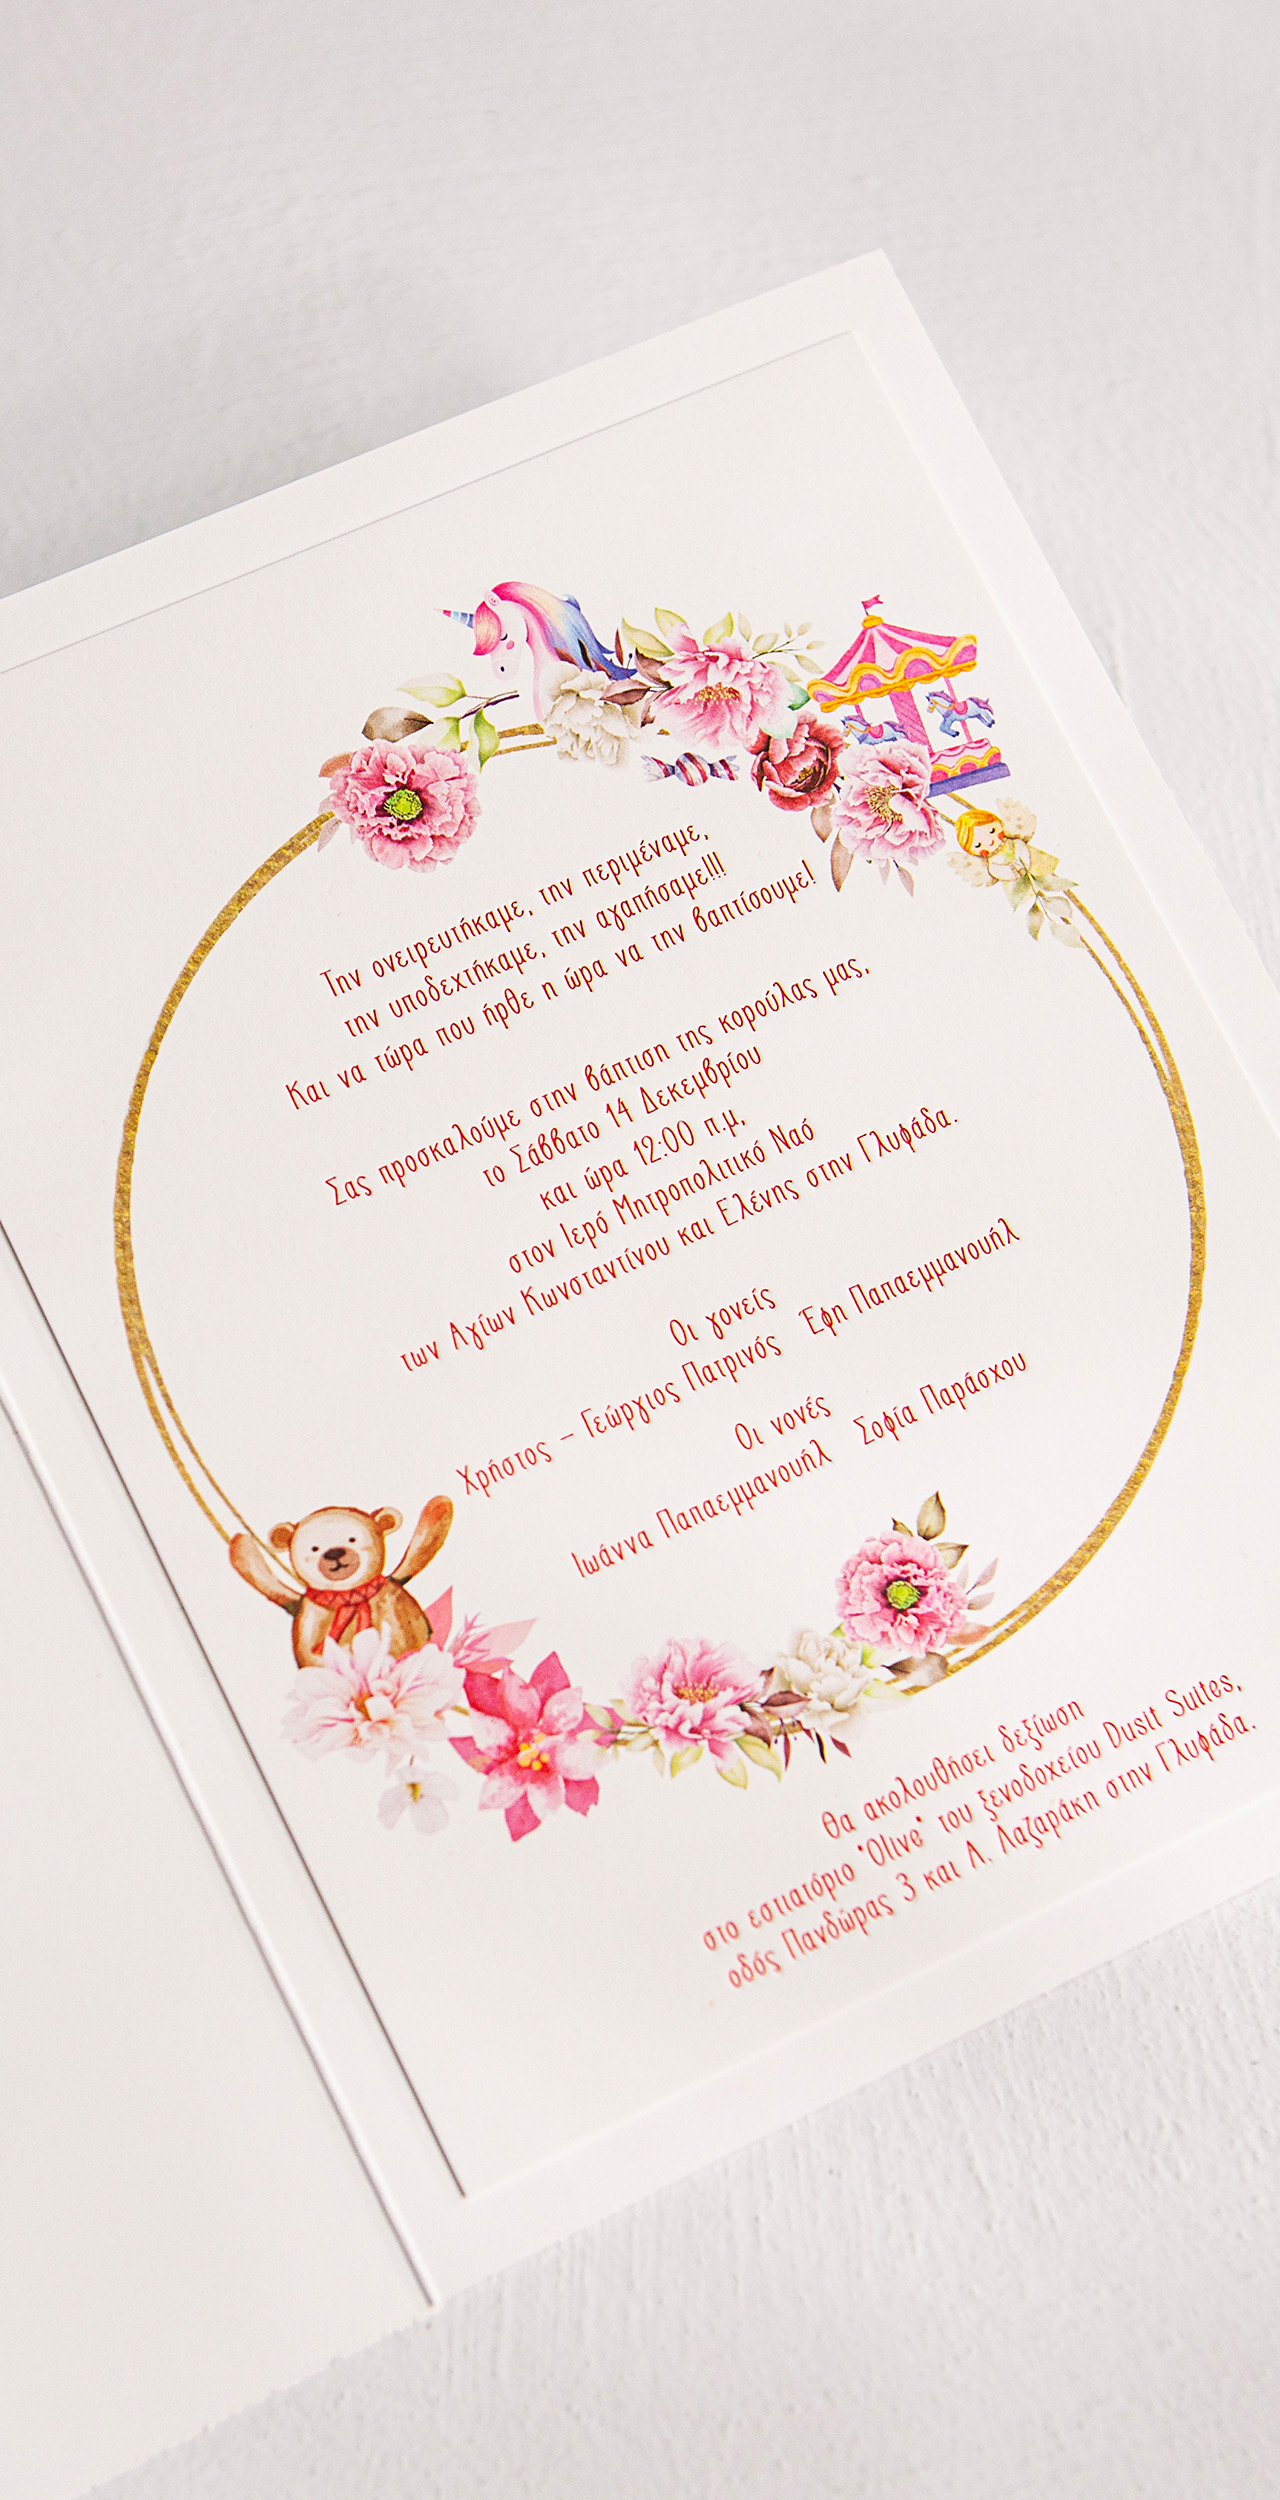 Την ονειρευτήκαμε, την περιμέναμε,
την υποδεχτήκαμε, την αγαπήσαμε!!!
Και να τώρα που ήρθε η ώρα να την βαπτίσουμε!
Σας προσκαλούμε στην βάπτιση της κορούλας μας,
το Σάββατο 14 Δεκεμβρίου
και ώρα 12:00 π.μ,
στον Ιερό Μητροπολιτικό Ναό
των Αγίων Κωνσταντίνου και Ελένης στην Γλυφάδα.
Οι γονείς
Χρήστος – Γεώργιος Πατρινός Έφη Παπαεμμανουήλ
Οι νονές
Ιωάννα Παπαεμμανουήλ Σοφία Παράσχου
Θα ακολουθήσει δεξίωση
στο εστιατόριο "Olive" του ξενοδοχείου Dusit Suites,
οδός Πανδώρας 3 και Λ. Λαζαράκη στην Γλυφάδα.